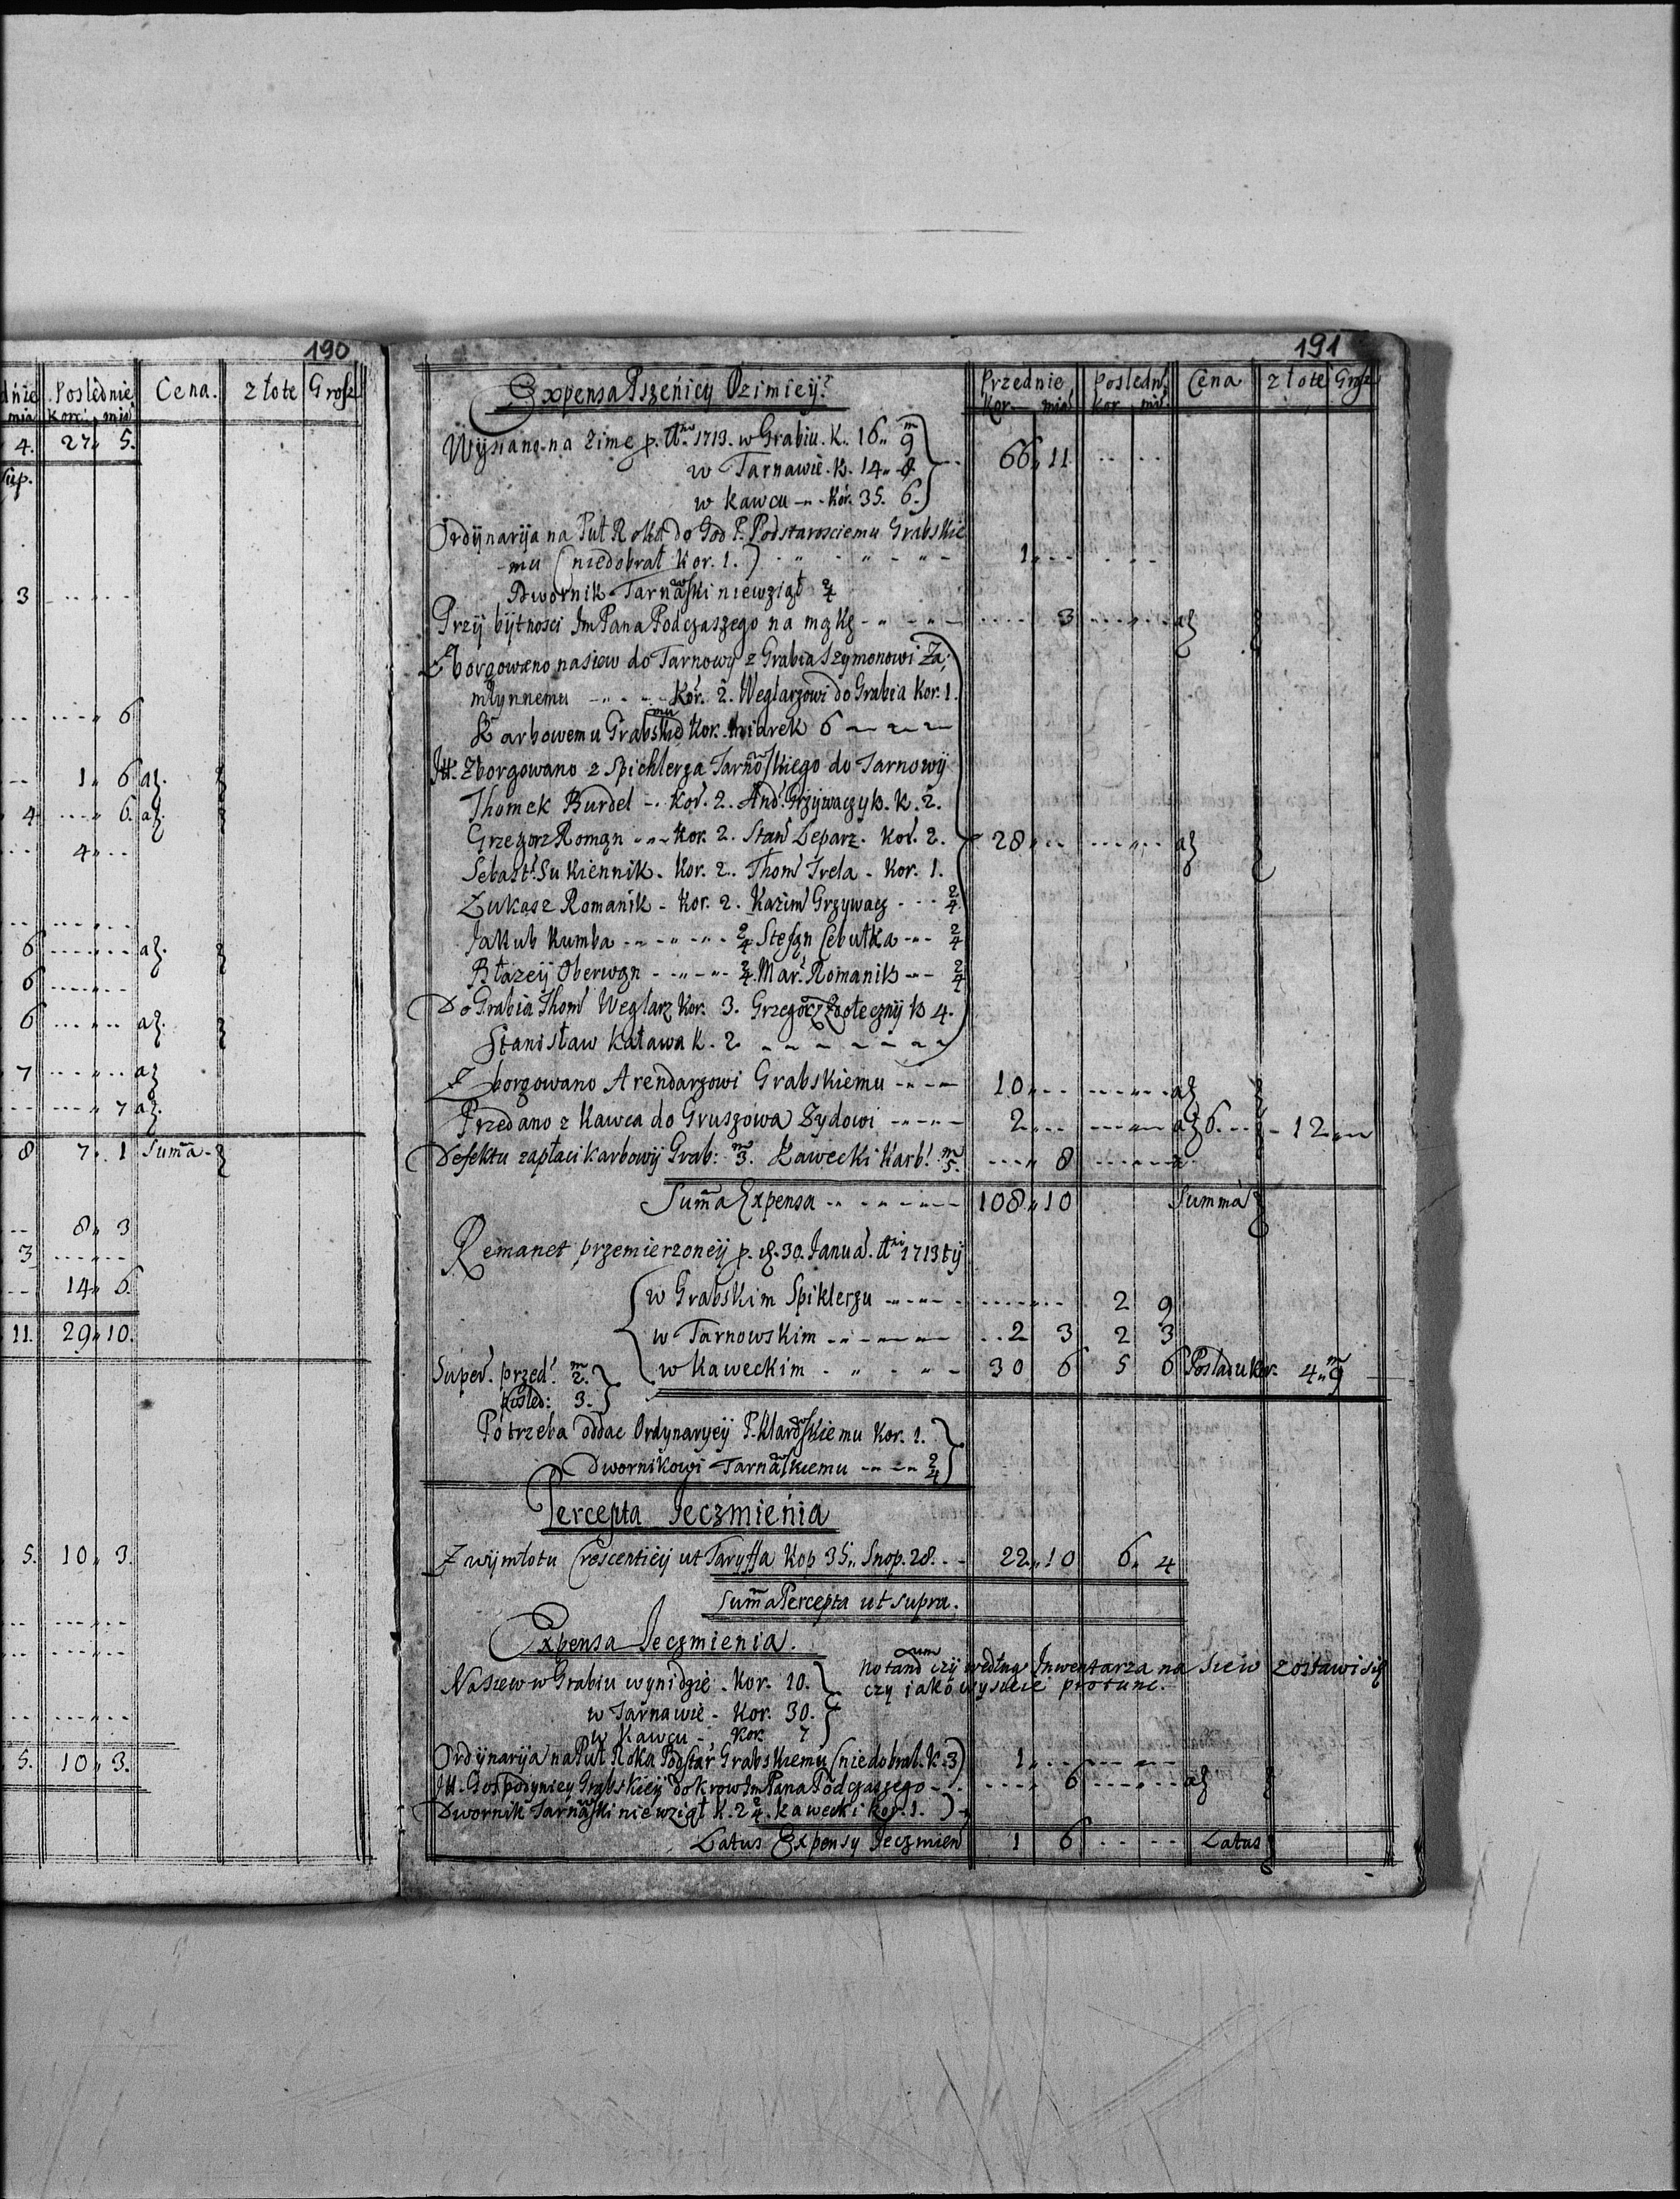 190
dnie Poslednie Cena. złote Grosz
mia Korc. mia
4. 27 „ 5.
Sup.
3 ... „ ...
... ... „ 6
-- 1 „ 6 a}.
4 ... „ 6. a}.
.. 4 „ ..
6 ... „ ... a}.
6 ... „ ..
6 ... „ .. a}.
7 ... „ .. a}
-- ... „ 7 a}.
8 7 „ 1 Sum̃a -
-- 8 „ 3
3 ... „ ...
-- 14 „ 6.
11. 29 „ 10.
5. 10 „ 3.
5. 10 „ 3.
191
Expensa Pszenicy Ozimiey. Przednie Posledn. Cena złote Grosz
Kor. mia kor mia
Wysiano na zime p. Aō 1713. w Grabiu. K. 16 „ 9 66 „ 11 .. ..
w Tarnawie. K. 14 „ 8
w Kawcu - „ - Kor. 35. 6.
Ordynaryja na Puł Roka do God P. Podstarosciemu Grabskie
mu (niedobrał Kor. 1.) 1 „ ..
Dwornik Tarnawski niewziął 2/4
Przy bytnosci Im Pana Podczaszego na mąkę - „ - „ - ... 3 ... „ ... a}
Zborgowano nasiew do Tarnowy z Grabia Szymonowi Za,
młynnemu - „ - „ - Kor. 2. Weglarzowi do Grabia Kor. 1.
Karbowemu Grabskiemu Kor. miarek 6
Itt. Zborgowano z Spichlerza Tarnowskiego do Tarnowy
Thomek Burdel -. Kor. 2. And. Grzywaczyk. K. 2.
Grzegorz Roman - „ - Kor. 2. Staw Leparz. Kor. 2. 28 „ .. ... „ .. a}
Sebast. Sukiennik. Kor. 2.. Thom Trela - Kor. 1.
Łukasz Romanik - Kor. 2. Kazim Grzywacz - - - 2/4
Jakub Kumba - „ - „ - 2/4 Stefan Cebulka - „ - 2/4
Błazeij Oberwan - „ - „ - 2/4. Mar. Romanik - „ - 2/4
Do Grabia Thom Weglarz Kor. 3. Grzegorz Złoteczny K 4.
Stanisław Kaława K. 2.
Zborgowano Arendarzowi Grabskiemu - „ - 10 „ .. ... „ .. a}
Przedano z Kawca do Gruszowa Zydowi - „ - „ - 2 „ .. ... „ .. a} 6. .. - 12 „ „
Defektu zapłaci karbowy Grab: m 3. Kawecki Karb. m 5. ... „ 8 ... „ ..
Sum̃a Expensa 108 „ 10 Summa
Remanet przemierzoney p. d. 30. Janua. Aō 1713 ty
w Grabskim Spiklerzu ... 2 9
w Tarnowskim .. 2 3 2 3
Super. przed. m 2. w Kaweckim - „ - „ - 30 6 5 6 Posladu kor. 4 „ m 9
Posled: 3.
Potrzeba oddac Ordynaryey P. Klarowskiemu Kor. 1.
Dwornikowi Tarnawskiemu - „ - „ 2/4
Percepta Jeczmienia
Z wymłotu Crescentiey ut Taryffa Kop 35 „ Snop. 28. - - 22 „ 10 6 „ 4
Sum̃a Percepta ut supra.
Expensa Jeczmienia.
Notandum czy według Inwentarza na siew zostawi się
Nasiew w Grabiu wynidzie. Kor. 10. czy iako wysieie protunc.
w Tarnawie - Kor. 30.
w Kawcu „ Kor. 7
Ordynaryja na Puł Roka Podstar Grabskiemu (niedobrał. K. 3) 1 „ ..
Itt. Gospodyniey Grabskiey do krow Im Pana Podczaszego - .. ... 6 ... „ .. a}
Dwornik Tarnawski niewziął K. 2 2/4. Kawecki Kor. 1.)
Latus Expensy Jeczmien 1 6 .. .. Latus